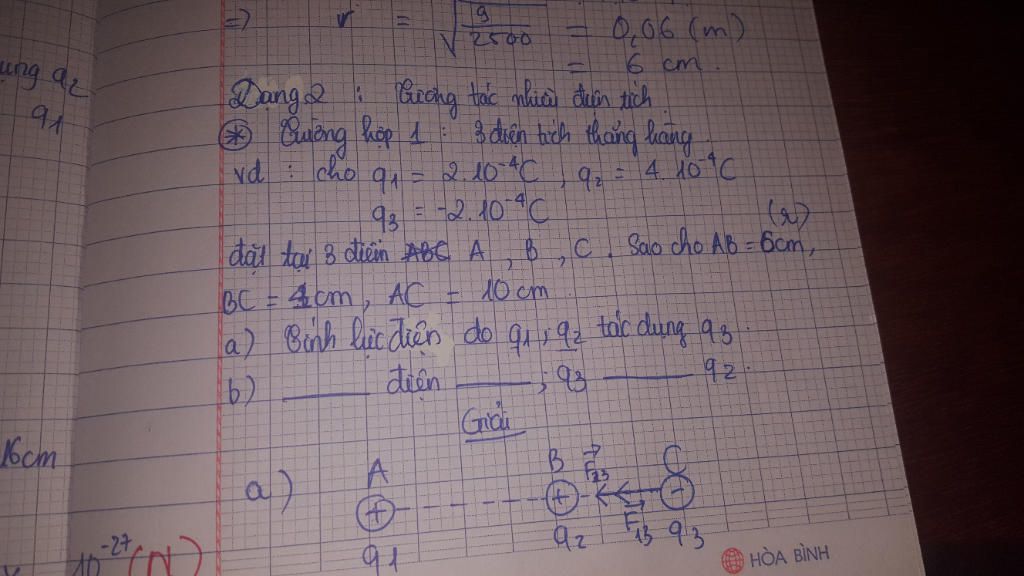 => r = √(9/2500) = 0,06 (m)
= 6 cm.
ụng q2
q1
Dạng 2 : Tương tác nhiều điện tích
* Trường hợp 1 : 3 điện tích thẳng hàng
vd : cho q1 = 2.10⁻⁴C, q2 = 4.10⁻⁴C
q3 = -2.10⁻⁴C
(r)
đặt tại 3 điểm ABC A, B, C. Sao cho AB = 6cm,
BC = 4cm, AC = 10cm
a) Tính lực điện do q1, q2 tác dụng q3.
b) ——— điện ———; q3 ——— q2.
Giải
16cm
a) A B F⃗23 C
+ - - - - + -
F⃗13
q1 q2 q3
10⁻²⁷ (N)
HÒA BÌNH